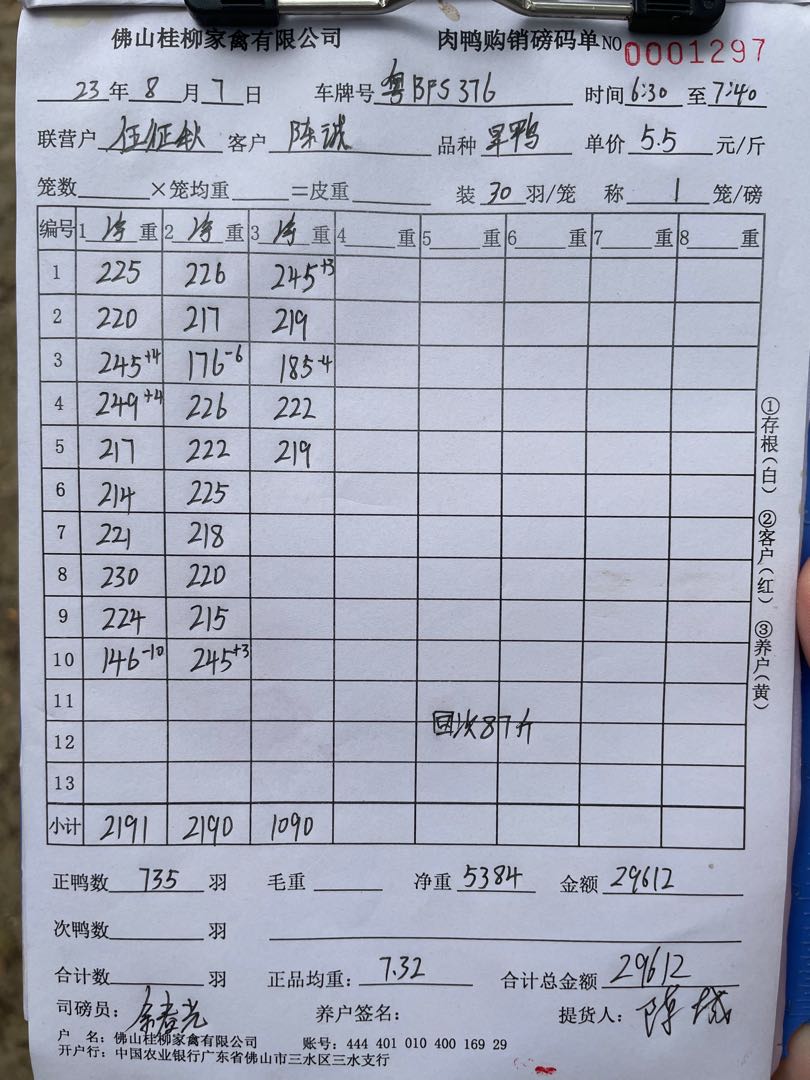 佛山桂柳家禽有限公司 肉鸭购销磅码单 NO 0001297
23年8月7日 车牌号 粤BPS376 时间 6:30 至 7:40
联营户 伍征秋 客户 陈诚 品种 旱鸭 单价 5.5 元/斤
笼数 ×笼均重 =皮重 装 30 羽/笼 称 1 笼/磅
编号 1 净 重 2 净 重 3 净 重 4 重 5 重 6 重 7 重 8 重
1 225 226 245+3
2 220 217 219
3 245+4 176-6 185-4
4 249+4 226 222
5 217 222 219
6 214 225
7 221 218
8 230 220
9 224 215
10 146-10 245+3
11
12 87斤
13
小计 2191 2190 1090
正鸭数 735 羽 毛重 净重 5384 金额 29612
次鸭数 羽
合计数 羽 正品均重: 7.32 合计总金额 29612
司磅员: 养户签名: 提货人: 陈诚
户 名: 佛山桂柳家禽有限公司 账号: 444 401 010 400 169 29
开户行: 中国农业银行广东省佛山市三水区三水支行
①存根(白) ②客户(红) ③养户(黄)